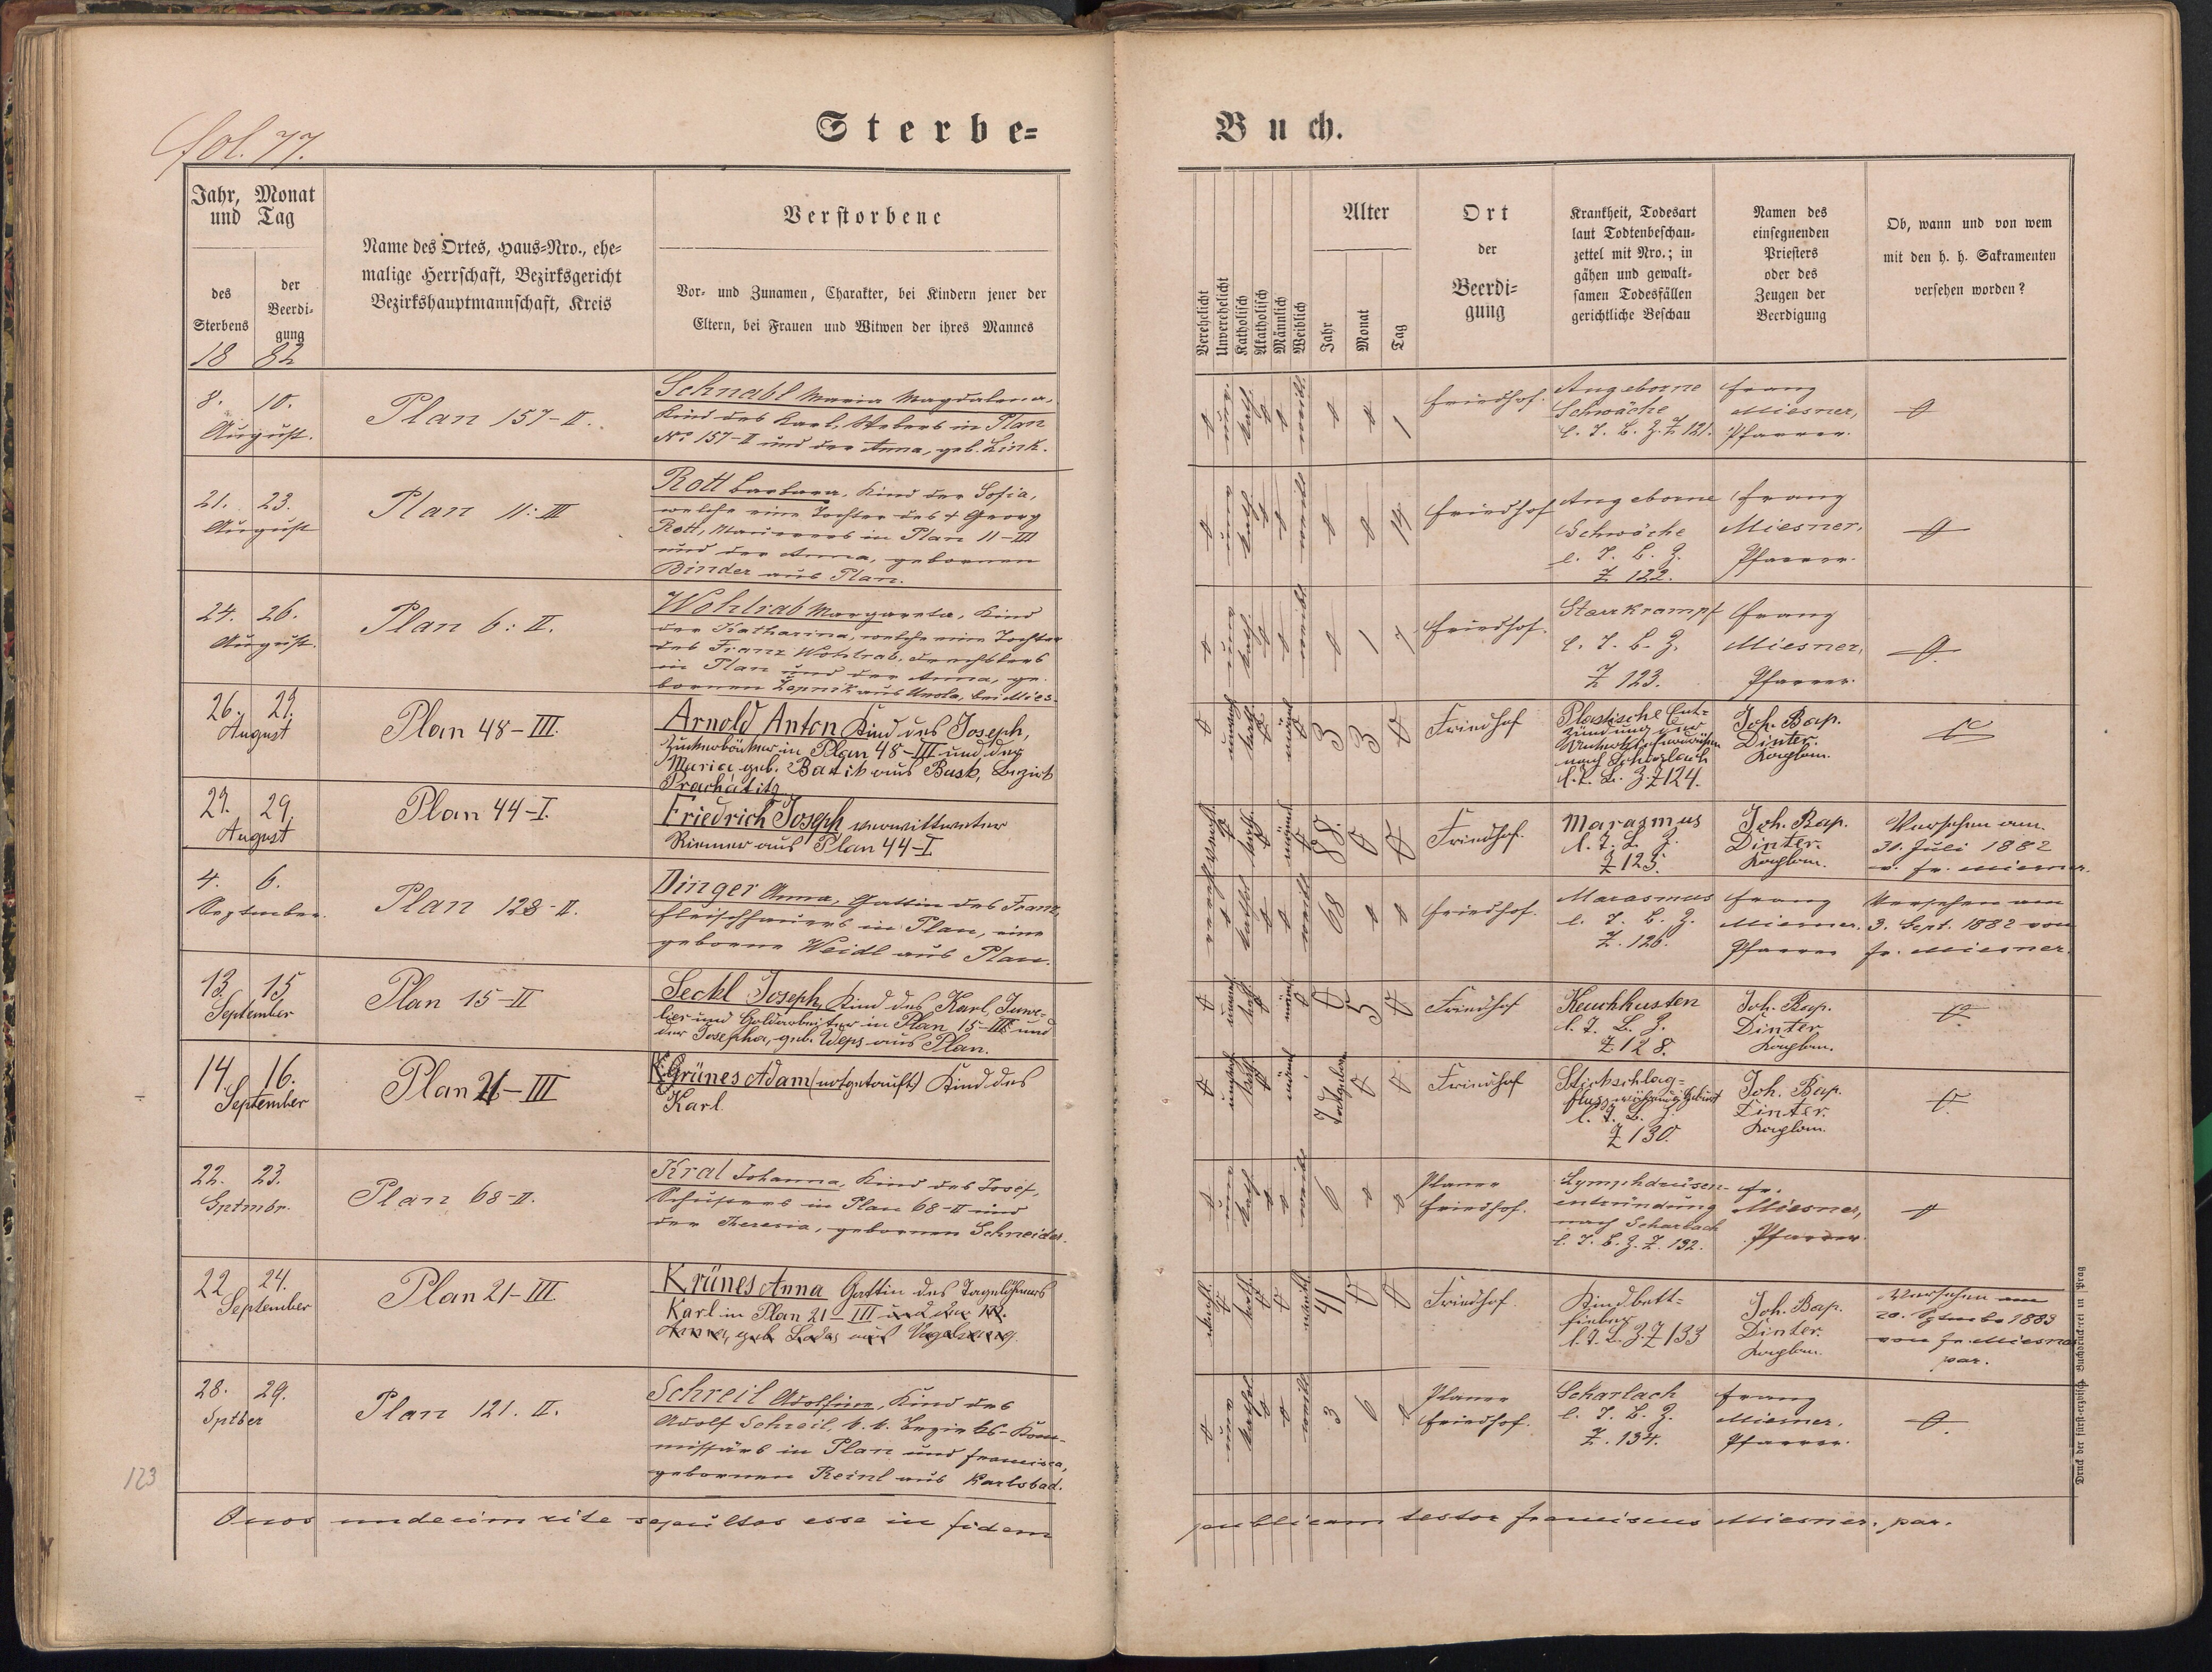 fol. 77.
Sterbe-
Buch.
Jahr, Monat
und Tag
des
Sterbens
der
Beerdi-
gung
18 82
Name des Ortes, Haus-Nro., ehe-
malige Herrschaft, Bezirksgericht
Bezirkshauptmannschaft, Kreis
Verstorbene
Vor- und Zunamen, Charakter, bei Kindern jener der
Eltern, bei Frauen und Witwen der ihres Mannes
Verehelicht
Unverehelicht
Katholisch
Akatholisch
Männlich
Weiblich
Alter
Jahr
Monat
Tag
Ort
der
Beerdi-
gung
Krankheit, Todesart
laut Todtenbeschau-
zettel mit Nro.; in
gähen und gewalt-
samen Todesfällen
gerichtliche Beschau
Namen des
einsegnenden
Priesters
oder des
Zeugen der
Beerdigung
Ob, wann und von wem
mit den h. h. Sakramenten
versehen worden?
8. 10.
August.
Plan 157-II.
Schnabl Maria Magdalena,
Kind des Karl, Webers in Plan
No 157-II und der Anna, geb. Link.
1
Friedhof.
Angeborne
Schwäche
l. T. B. Z. Z 121.
Franz
Miesner,
Pfarrer.
21. 23.
August
Plan 11: III
Rott Barbara, Kind der Sofia,
welche eine Tochter des † Georg
Rott, Maurers in Plan 11-III
und der Anna, gebornen
Binder aus Plan.
14
Friedhof
Angeborne
Schwäche
l. T. B. Z.
Z 122.
Franz
Miesner,
Pfarrer.
24. 26.
August.
Plan 6: II.
Wohlrab Margareta, Kind
der Katharina, welche eine Tochter
des Franz Wohlrab, Drechslers
in Plan und der Anna, ge-
bornen aus bei Mies.
1 7
Friedhof.
Starrkrampf
l. T. B. Z.
Z 123.
Franz
Miesner,
Pfarrer.
26. 29.
August
Plan 48-III.
Arnold Anton Kind des Joseph,
Zuckerbäcker in Plan 48-III und der
Maria geb. Batik aus Busk, Bezirk
Prachatitz
3 3
Friedhof
Plastische Ent-
zündung der
nach Scharlach
l. T. B. Z. Z 124.
Joh. Bap.
Dinter.
Kaplan.
27. 29.
August
Plan 44-I.
Friedrich Joseph verwittweter
Riemer aus Plan 44-I
88.
Friedhof.
Marasmus
l. T. B. Z.
Z 125.
Joh. Bap.
Dinter.
Kaplan.
Versehen am
31. Juli 1882
v. Fr. Miesner.
4. 6.
September.
Plan 128-II.
Dinger Anna, Gattin des Franz,
Fleischhauers in Plan, eine
geborne Weidl aus Plan.
68
Friedhof.
Marasmus
l. T. B. Z.
Z. 126.
Franz
Miesner.
Pfarrer
Versehen am
3. Sept. 1882 von
Fr. Miesner.
13. 15
September
Plan 15-II
Seckl Joseph, Kind des Karl, Juwe-
lier und Goldarbeiter in Plan 15-II und
der Josepha, geb. Weps aus Plan.
5
Friedhof
Keuchhusten
l. T. B. Z.
Z 128.
Joh. Bap.
Dinter
Kaplan.
14. 16.
September
Plan 21-III
Grünes Adam (notgetauft) Kind des
Karl.
Todtgeboren
Friedhof
Stickschlag-
fluss während Geburt
l. T. B. Z.
Z 130.
Joh. Bap.
Dinter.
Kaplan.
22. 23.
Sptmbr.
Plan 68-II.
Kral Johanna, Kind des Josef,
Schusters in Plan 68-II und
der Theresia, gebornen Schneider.
6
Planer
Friedhof.
Lymphdrüsen-
entzündung
nach Scharlach
l. T. B. Z. Z. 132.
Fr.
Miesner,
Pfarrer.
22. 24.
September
Plan 21-III.
Krünes Anna Gattin des Tagelöhners
Karl in Plan 21-III und der
Anna, geb.
41
Friedhof.
Kindbett-
fieber
l. T. B. Z. Z 133
Joh. Bap.
Dinter.
Kaplan.
Versehen am
20. 1883
von Fr. Miesner
par.
28. 29.
Sptber
Plan 121. II.
Schreil Adolfine, Kind des
Adolf Schreil, k. k. Bezirks-Kom-
missärs in Plan und Francisca,
gebornen Reinl aus Karlsbad.
3 6
Planer
Friedhof.
Scharlach
l. T. B. Z.
Z. 134.
Franz
Miesner,
Pfarrer.
123
Quos undecim rite sepultos esse in fidem
publicam testor Franciscus Miesner, par.
Druck der fürst-erzbisch. Buchdruckerei in Prag